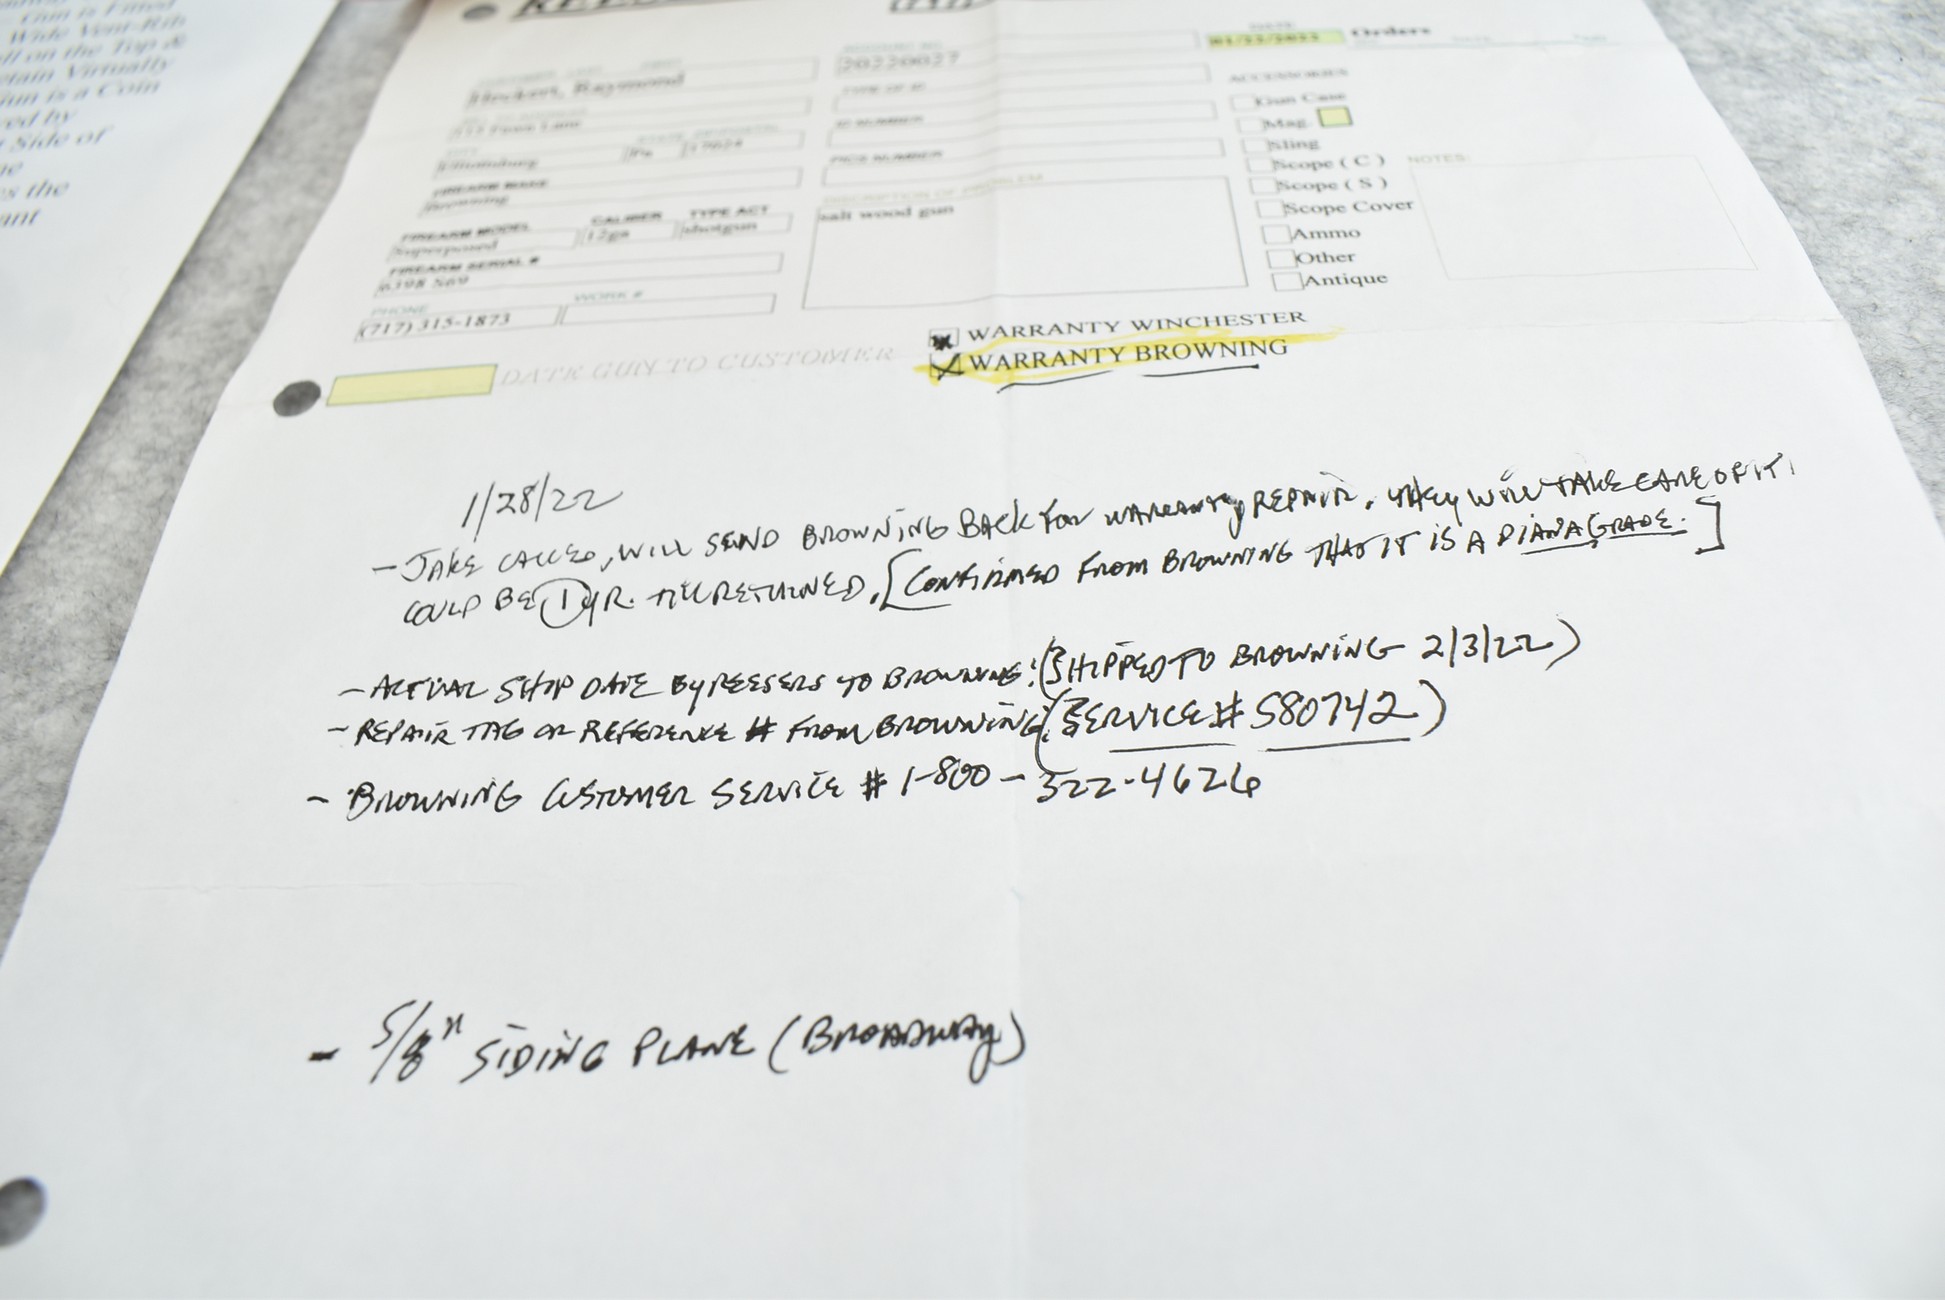 Coin is Fitted
Wide Vent-Rib
on the Top &
Virtually
is a Coin
by
Side of
the
DATE
01/22/2022 Orders
20220027
Heckert, Raymond
ACCESSORIES
TYPE OF ID
Gun Case
Lane
Mag.
ID NUMBER
Sling
Pa
PICS NUMBER
Scope ( C )
NOTES:
FIREARM MAKE
Browning
DESCRIPTION OF PROBLEM
Scope ( S )
salt wood gun
Scope Cover
FIREARM MODEL CALIBER TYPE ACT
Superposed 12ga shotgun
Ammo
FIREARM SERIAL #
Other
6398 S69
Antique
PHONE WORK #
(717) 315-1873
WARRANTY WINCHESTER
DATE GUN TO CUSTOMER
WARRANTY BROWNING
1/28/22
- JAKE CALLED, WILL SEND BROWNING BACK FOR WARRANTY REPAIR. THEY WILL TAKE CARE OF IT.
COULD BE 1 YR. TILL RETURNED. [CONFIRMED FROM BROWNING THAT IT IS A DIANA GRADE.]
- ACTUAL SHIP DATE BY REESERS TO BROWNING: (SHIPPED TO BROWNING 2/3/22)
- REPAIR TAG OR REFERENCE # FROM BROWNING: (SERVICE # S80742)
- BROWNING CUSTOMER SERVICE # 1-800-322-4626
- 5/8" SIDING PLANE (BROADWAY)